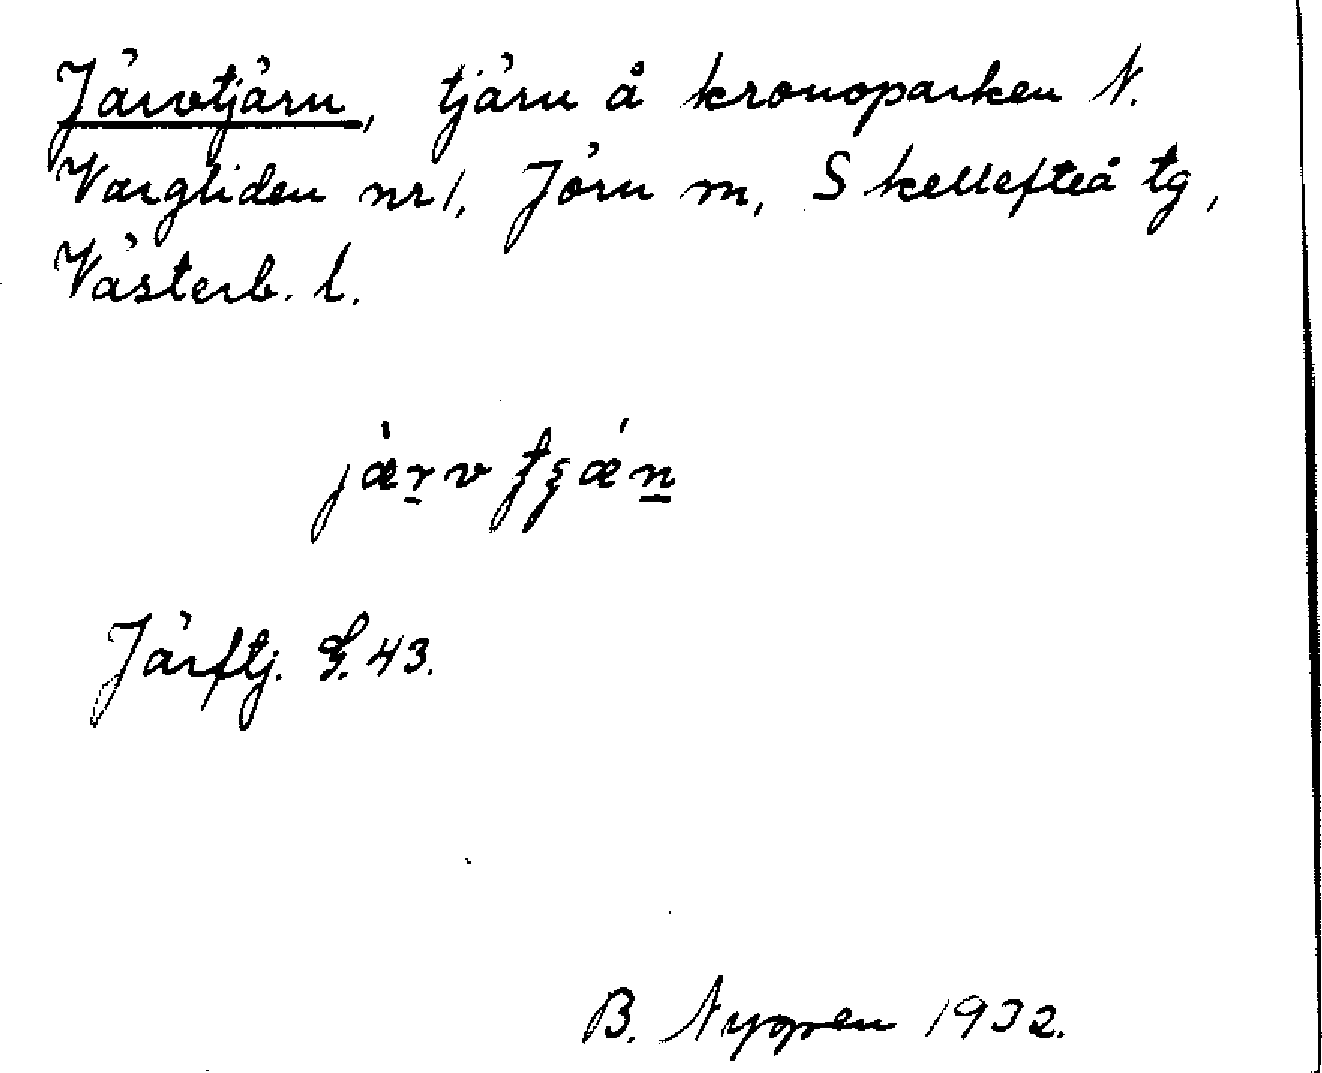 Järvtjärn, tjärn å kronoparken N.
Vargliden nr 1, Jörn m, Skellefteå tg,
Västerb. l.
jæ̀r̠v tʂǽn̠
Järftj. G. 43.
B. Nyppen 1932.